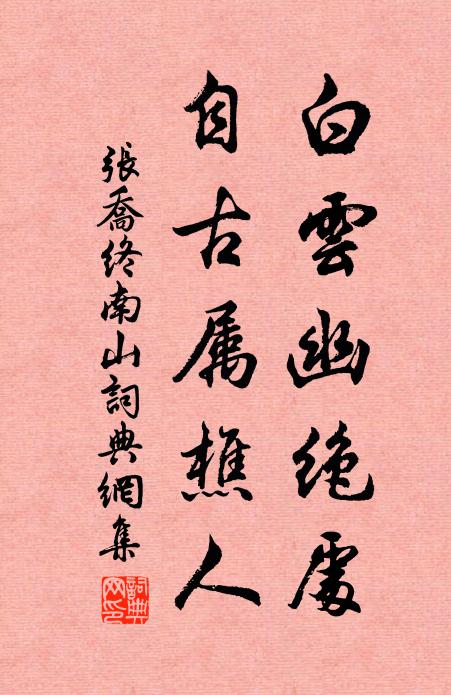 白雲幽絶處
自古属樵人
張喬終南山詞典網集
詞典网印